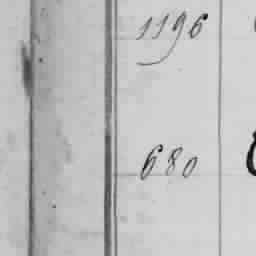 1196
680